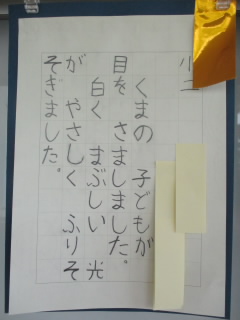 小二
くまの 子どもが
目を さましました。
白く まぶしい 光
が やさしく ふりそ
そぎました。